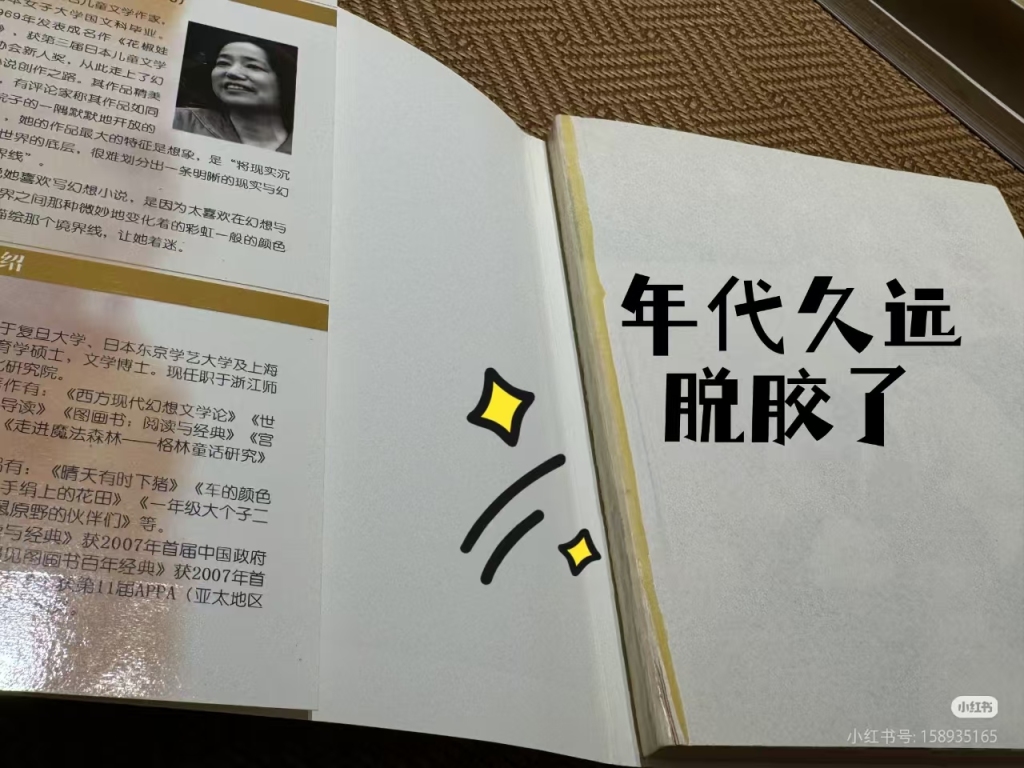 儿童文学作家,
女子大学国文科毕业。
969年发表成名作《花椒娃
》,获第三届日本儿童文学
协会新人奖,从此走上了幻
说创作之路。其作品精美
,有评论家称其作品如同
院子的一隅默默地开放的
,她的作品最大的特征是想象,是“将现实沉
世界的底层,很难划分出一条明晰的现实与幻
界线”。
她喜欢写幻想小说,是因为太喜欢在幻想与
界之间那种微妙地变化着的彩虹一般的颜色
描绘那个境界线,让她着迷。
绍
于复旦大学、日本东京学艺大学及上海
育学硕士,文学博士。现任职于浙江师
化研究院。
作有:《西方现代幻想文学论》《世
导读》《图画书:阅读与经典》《宫
《走进魔法森林——格林童话研究》
有:《晴天有时下猪》《车的颜色
手绢上的花田》《一年级大个子二
原野的伙伴们》等。
与经典》获2007年首届中国政府
见图画书百年经典》获2007年首
获第11届APPA(亚太地区
年代久远
脱胶了
小红书
小红书号: 158935165